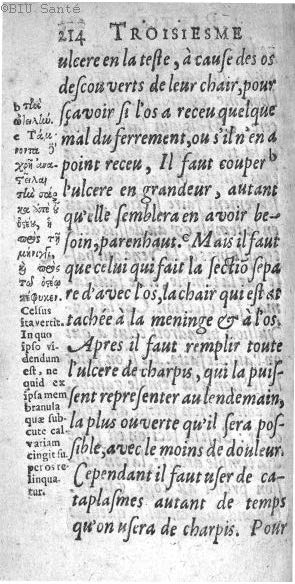 ©BIU. Santé
214 TROISIESME
ulcere en la teste, à cause des os
descouverts de leur chair, pour
sçavoir si l'os a receu quelque
mal du ferrement, ou s'il n'en a
point receu, Il faut couper b
l'ulcere en grandeur, autant
qu'elle semblera en avoir be-
soin, par enhaut. c Mais il faut
que celui qui fait la sectiō sepa
re d'avec l'os, la chair qui est at
tachée à la meninge & à l'os.
Apres il faut remplir toute
l'ulcere de charpis, qui la puis-
sent representer au lendemain,
la plus ouverte qu'il sera pos-
sible, avec le moins de douleur.
Cependant il faut user de ca-
taplasmes autant de temps
qu'on usera de charpis. Pour
Celsius
ita vertit.
In quo
ipso vi-
dendum
est, ne
quid ex
ipsa mem
branula
quæ sub-
cute cal-
variam
cingit su-
per os re-
linqua-
tur.